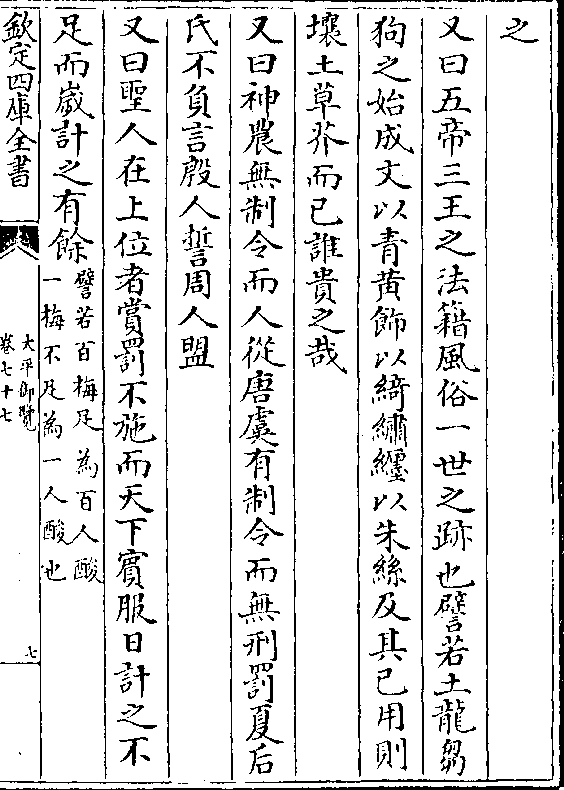 之
又曰五帝三王之法籍風俗一世之跡也譬若土龍芻
狗之始成文以青黄飾以綺繡纒以朱絲及其已用則
壤土草芥而已誰貴之哉
又曰神農無制令而人從唐虞有制令而無刑罰夏后
氏不負言殷人誓周人盟
又曰聖人在上位者賞罰不施而天下賓服日計之不
足而嵗計之有餘
譬若百梅足為百人酸
一梅不足為一人酸也
欽定四庫全書
太平御覽
卷七十七
七